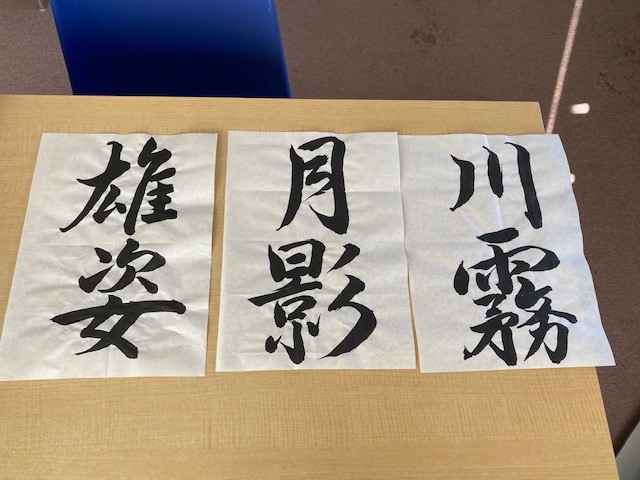 川霧
月影
雄姿